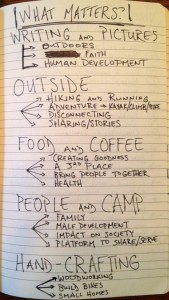 WHAT MATTERS?
WRITING AND PICTURES
OUTDOORS
FAITH
HUMAN DEVELOPMENT
OUTSIDE
HIKING AND RUNNING
ADVENTURE → CLIMB
DISCONNECTING
SHARING/STORIES
FOOD AND COFFEE
CREATING GOODNESS
A 3RD PLACE
BRING PEOPLE TOGETHER
HEALTH
PEOPLE AND CAMP
FAMILY
MALE DEVELOPMENT
IMPACT ON SOCIETY
PLATFORM TO SHARE/SERVE
HAND-CRAFTING
WOODWORKING
BUILD BIKES
SMALL HOMES